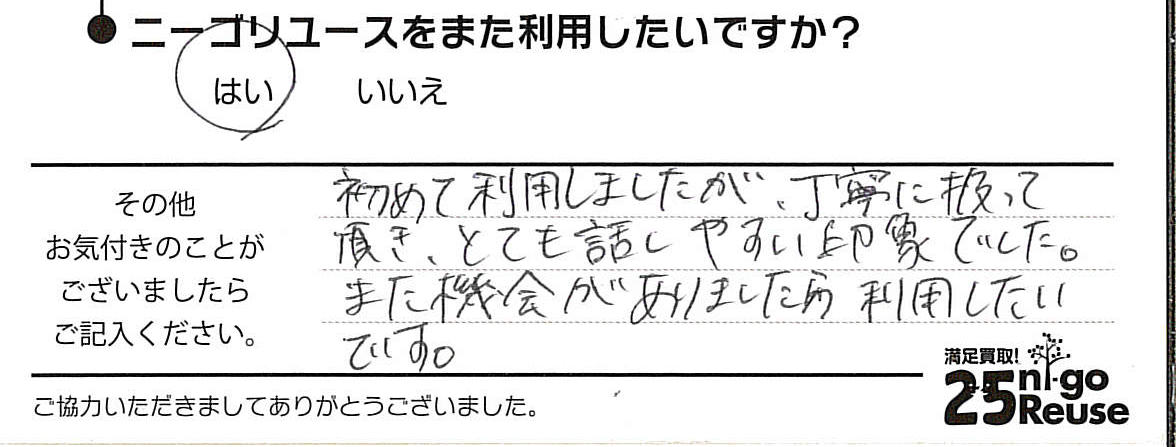 ニーゴリユースをまた利用したいですか?
はい いいえ
その他
お気付きのことが
ございましたら
ご記入ください。
初めて利用しましたが、丁寧に扱って
頂き、とても話しやすい印象でした。
また機会がありましたら利用したい
です。
満足買取!
25 ni-go
Reuse
ご協力いただきましてありがとうございました。